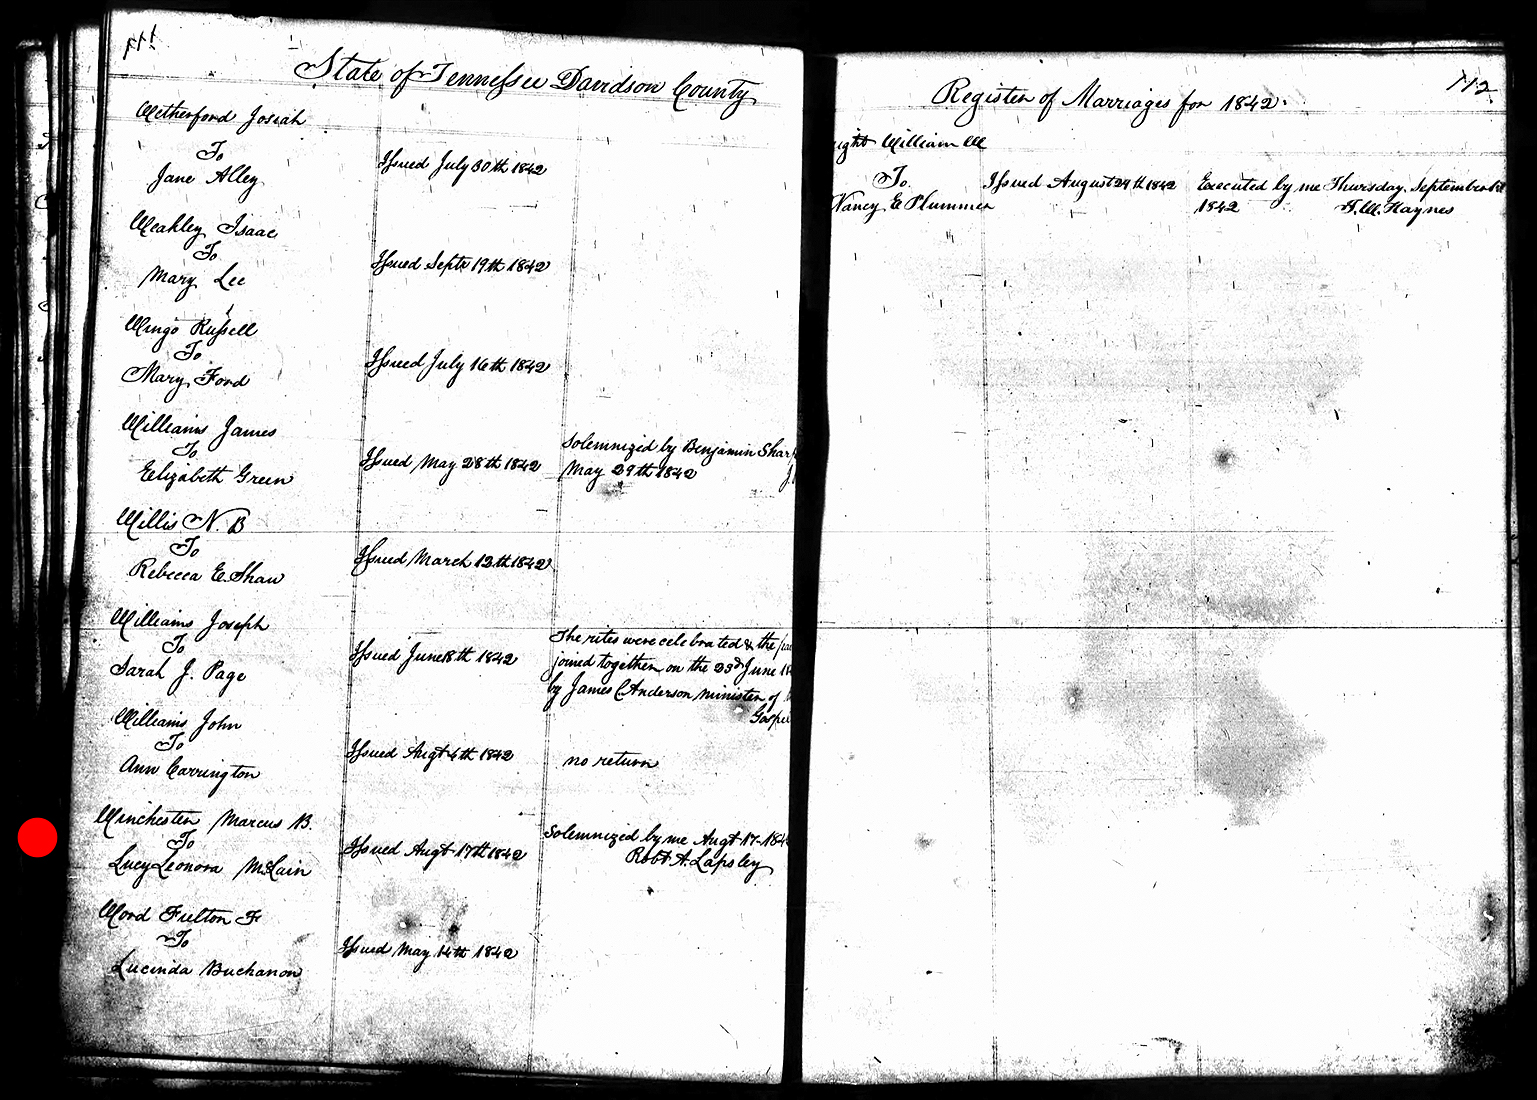 111
State of Tennessee Davidson County
Wetherford Josiah
To
Jane Alley
Issued July 30th 1842
Weakley Isaac
To
Mary Lee
Issued Septr 19th 1842
Wingo Russell
To
Mary Ford
Issued July 16th 1842
Williams James
To
Elizabeth Green
Issued May 28th 1842
Solemnized by Benjamin Shar
May 29th 1842
Willis N. B
To
Rebecca E. Shaw
Issued March 12th 1842
Williams Joseph
To
Sarah J. Page
Issued June 18th 1842
The rites were celebrated & the
joined together on the 23d June 18
by James C. Anderson minister of
Gospe
Williams John
To
Ann Carrington
Issued Augt 4th 1842
no return
Winchester Marcus B.
To
Lucy Leonora McLain
Issued Augt 17th 1842
Solemnized by me Augt 17-184
Robt A. Lapsley
Word Fulton F
To
Lucinda Buchanon
Issued May 14th 1842
112
Register of Marriages for 1842.
ight William W
To
Nancy E Plummer
Issued August 29th 1842
Executed by me Thursday, September 1st
1842
T. W. Haynes